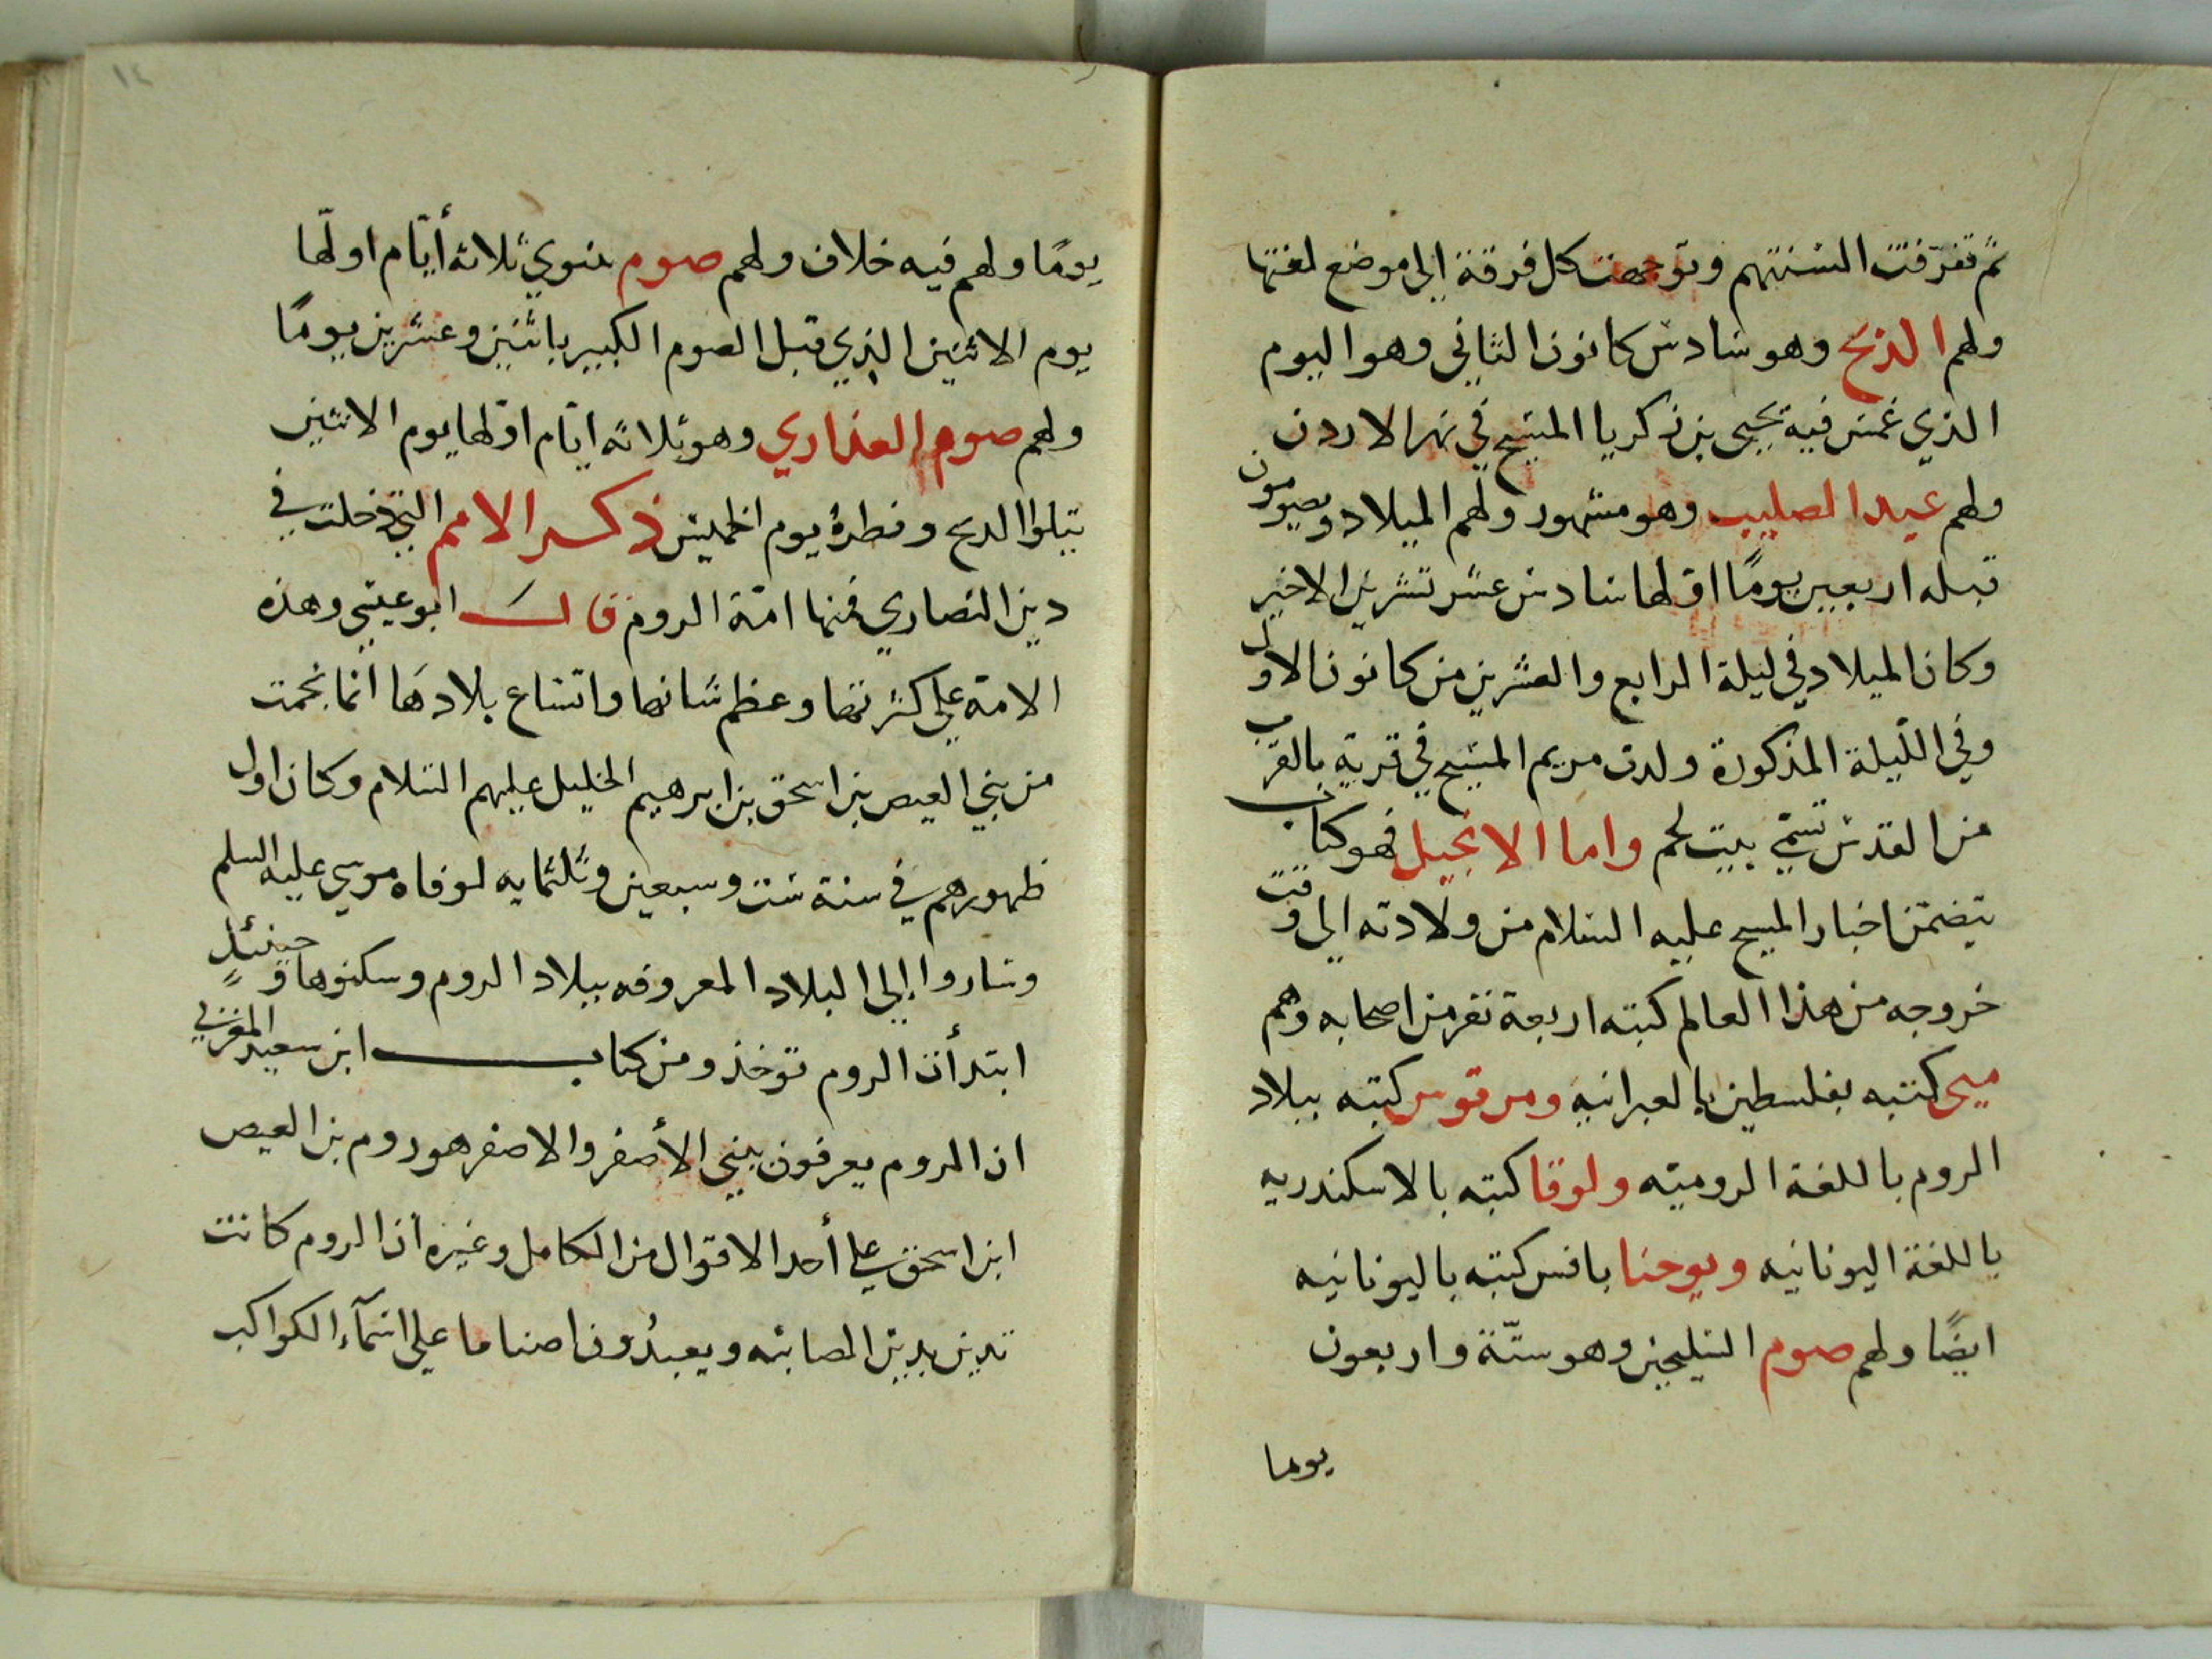 ثم تفرقت السنتهم وتوجهت كل فرقة الى موضع لغتها
ولهم الذبح وهو سادس كانون الثاني وهو اليوم
الذي غمس فيه يحيى بن زكريا المسيح في نهر الاردن
ولهم عيد الصليب وهو مشهور ولهم الميلاد ويصومون
قبله اربعين يومًا اولها سادس عشر تشرين الاخير
وكان الميلاد في ليلة الرابع والعشرين من كانون الاول
وفي اللّيلة المذكورة ولدت مريم المسيح في قرية بالقرب
من القدس تسمّي بيت لحم واما الانجيل فهو كتاب
يتضمّن اخبار المسيح عليه السلام من ولادته الي وقت
خروجه من هذا العالم كتبه اربعة نفر من اصحابه وهم
ميى كتبه بفلسطين بالعبرانيه ومرقوس كتبه ببلاد
الروم باللغة الروميّه ولوقا كتبه بالاسكندريه
باللغة اليونانيه ويوحنا بافس كتبه باليونانيه
ايضًا ولهم صوم السليحين وهو ستّة واربعون
يوما
١٤
يومًا ولهم فيه خلاف ولهم صوم ننوي ثلاثة أيّام اولّها
يوم الاثنين الذي قبل الصوم الكبير باثنين وعشرين يومًا
ولهم صوم العذاري وهو ثلاثه ايّام اوّلها يوم الاثنين
يتلوا الدبح وفطرهُ يوم الخميس ذكر الامم التي دخلت في
دين النصاري فمنها امّة الروم قال ابو عيسي وهذه
الامة علي كثرتها وعظم شانها واتساع بلادها انما نجمت
من بني العيص بن اسحق بن ابرهيم الخليل عليهم السلام وكان اول
ظهورهم في سنة ست وسبعين وثلثمايه لوفاه موسي عليه السلم
وساروا إلى البلاد المعروفه ببلاد الروم وسكنوها وحينئذٍ
ابتدأت الروم توخذ ومن كتاب ابن سعيد المغربي
ان الروم يعرفون ببني الأصفر والاصفر هو روم بن العيص
ابن اسحق علي أحد الاقوال من الكامل وغيره أن الروم كانت
تدين بدين الصابئه ويعبدُون اصناما علي اسمآء الكواكب